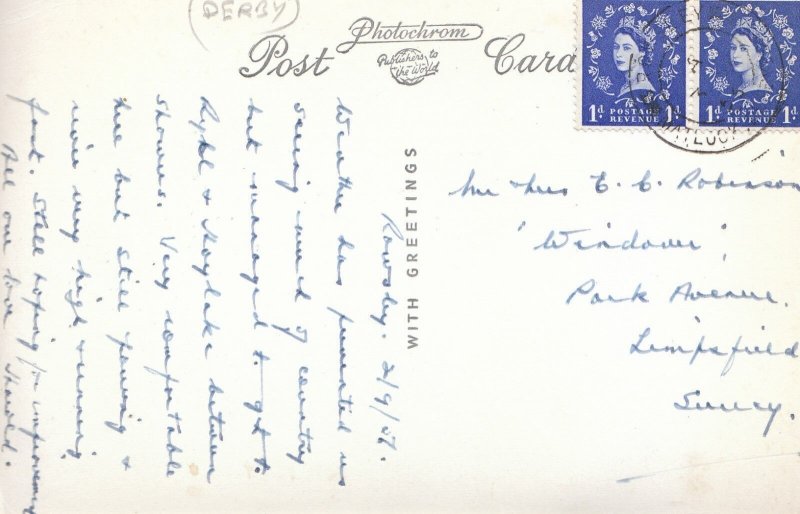 DERBY
Post
Photochrom
Publishers to
the World
Card
1d POSTAGE REVENUE 1d
1d POSTAGE REVENUE 1d
MATLOCK
WITH GREETINGS
Rowsley. 2/9/57.
Weather has prevented us
seeing much of country
but managed to get to
Rhyl & Hoylake between
Showers. Very comfortable
here but still pouring &
river very high & running
fast. Still hoping for improvement
All our love
Mr & Mrs E. C. Robinson
'Windover',
Park Avenue.
Limpsfield
Surrey.